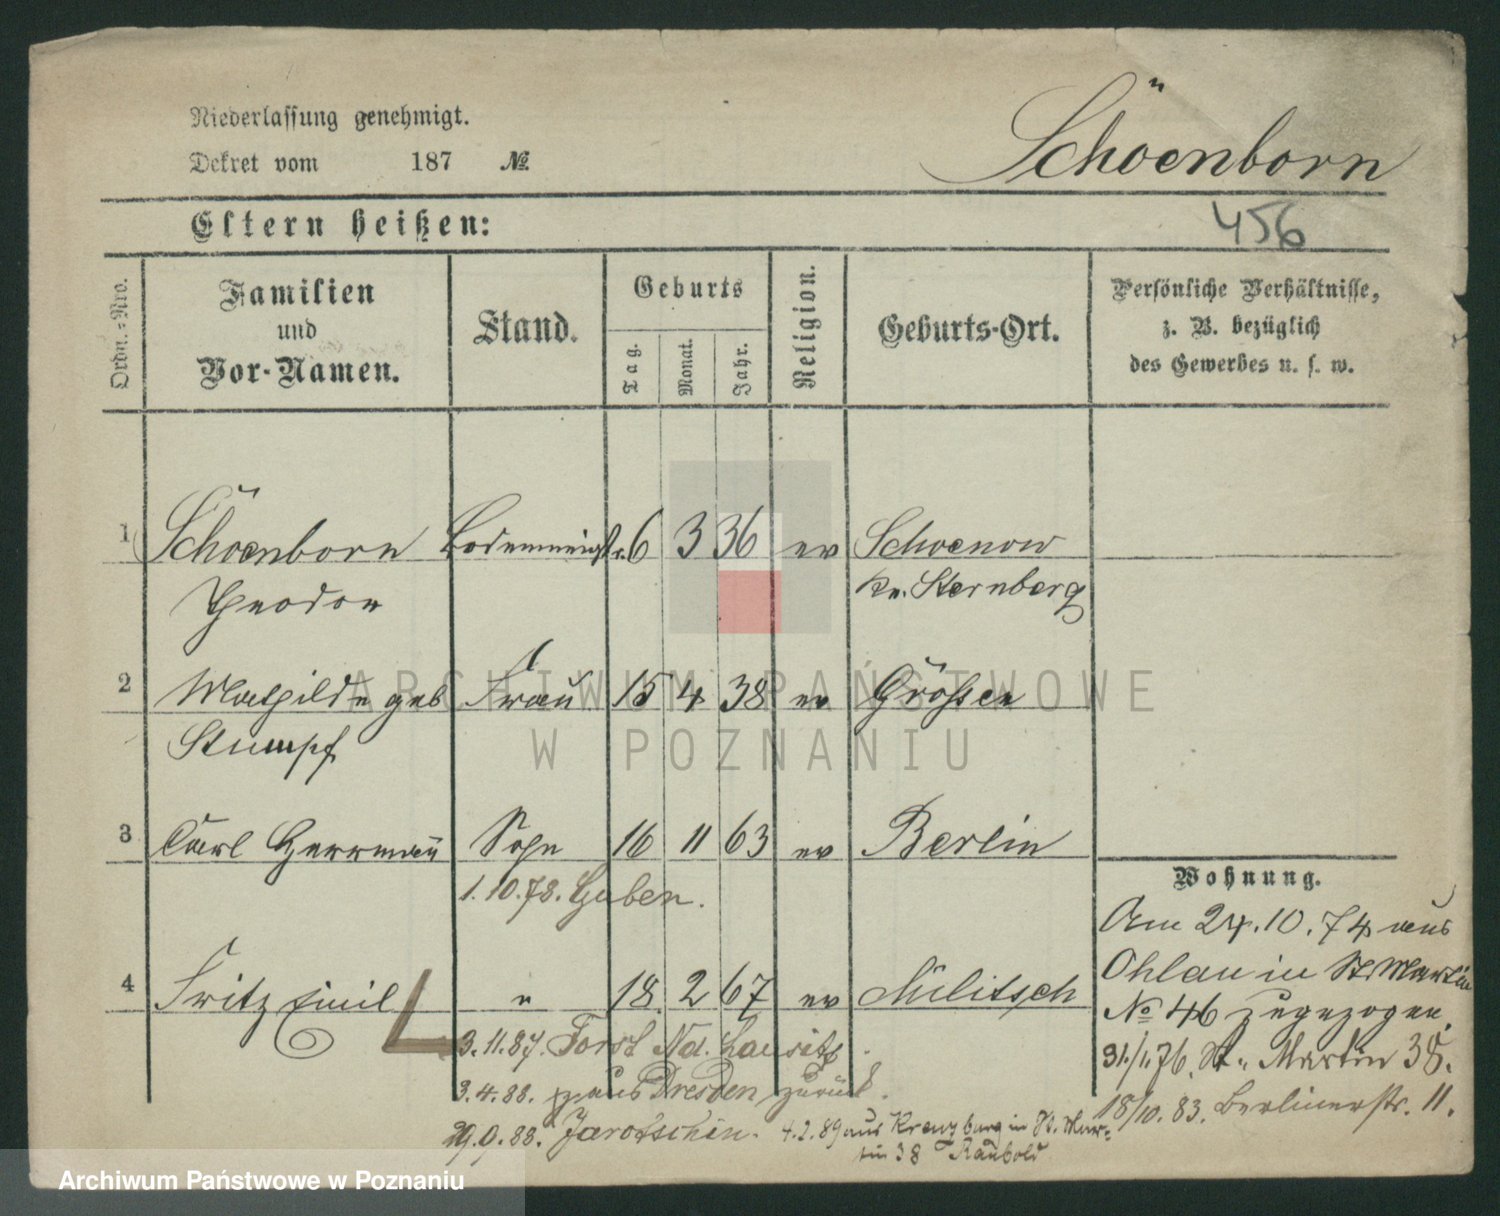 Niederlassung genehmigt.
Dekret vom 187 №
Schöenborn
Eltern heißen:
456
Ordn.-Nro.
Familien und Vor-Namen.
Stand.
Geburts
Tag. Monat. Jahr.
Religion.
Geburts-Ort.
Persönliche Verhältnisse,
z. B. bezüglich
des Gewerbes u. s. w.
1 Schoenborn Bodenmeistr. 6 3 36 ev Schoenow
Theodor Kr. Sternberg
2 Mathilde geb Frau 15 4 38 ev Grossen
Stumpf
3 Carl Herrmañ Sohn 16 11 63 ev Berlin
1.10.78. Guben.
Wohnung.
Am 24.10.74 aus
Ohlau in St Martin
№ 46 zugezogen.
31/1.76. St. Martin 38.
18/10.83. Berlinerstr. 11.
4 Fritz Emil " 18. 2 67 ev Militsch
3.11.87. Forst Nd. Lausitz.
3.4.88. aus Dresden zurück.
29.9.88. Jarotschin. 4.2.89 aus Kreuzburg in St. Mar-
tin 38 Raubold
ARCHIWUM PAŃSTWOWE
W POZNANIU
Archiwum Państwowe w Poznaniu